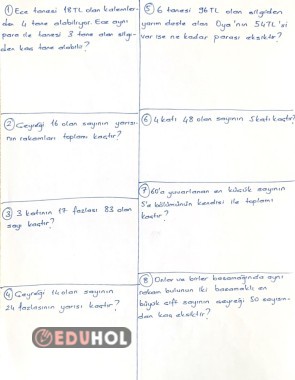 ① Ece tanesi 18TL olan kalemler-
den 4 tane alabiliyor. Ece aynı
para ile tanesi 3 tane olan silgi-
den kaç tane alabilir?
② Çeyreği 16 olan sayının yarısı-
nın rakamları toplamı kaçtır?
③ 3 katının 17 fazlası 83 olan
sayı kaçtır?
④ Çeyreği 14 olan sayının
24 fazlasının yarısı kaçtır?
EDUHOL
⑤ 6 tanesi 96TL olan silgiden
yarım deste alan Oya'nın 54TL'si
var ise ne kadar parası eksiktir?
⑥ 4 katı 48 olan sayının 5 katı kaçtır?
⑦ 60'a yuvarlanan en küçük sayının
5'e bölümünün kendisi ile toplamı
kaçtır?
⑧ Onlar ve birler basamağında aynı
rakam bulunan iki basamaklı en
büyük çift sayının çeyreği 50 sayısın-
dan kaç eksiktir?